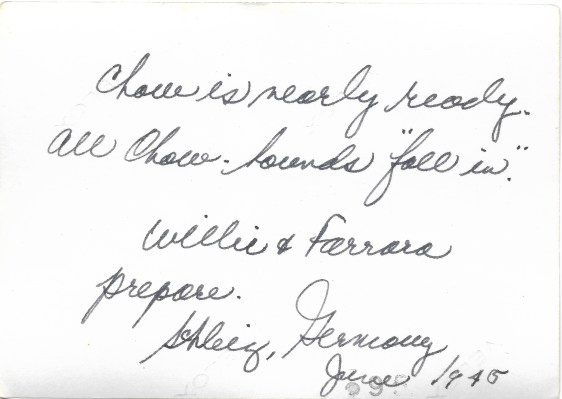 Chow is nearly ready.
All Chow-hounds "fall in".
Willie & Farrara
prepare.
Schleiz, Germany
June 1945